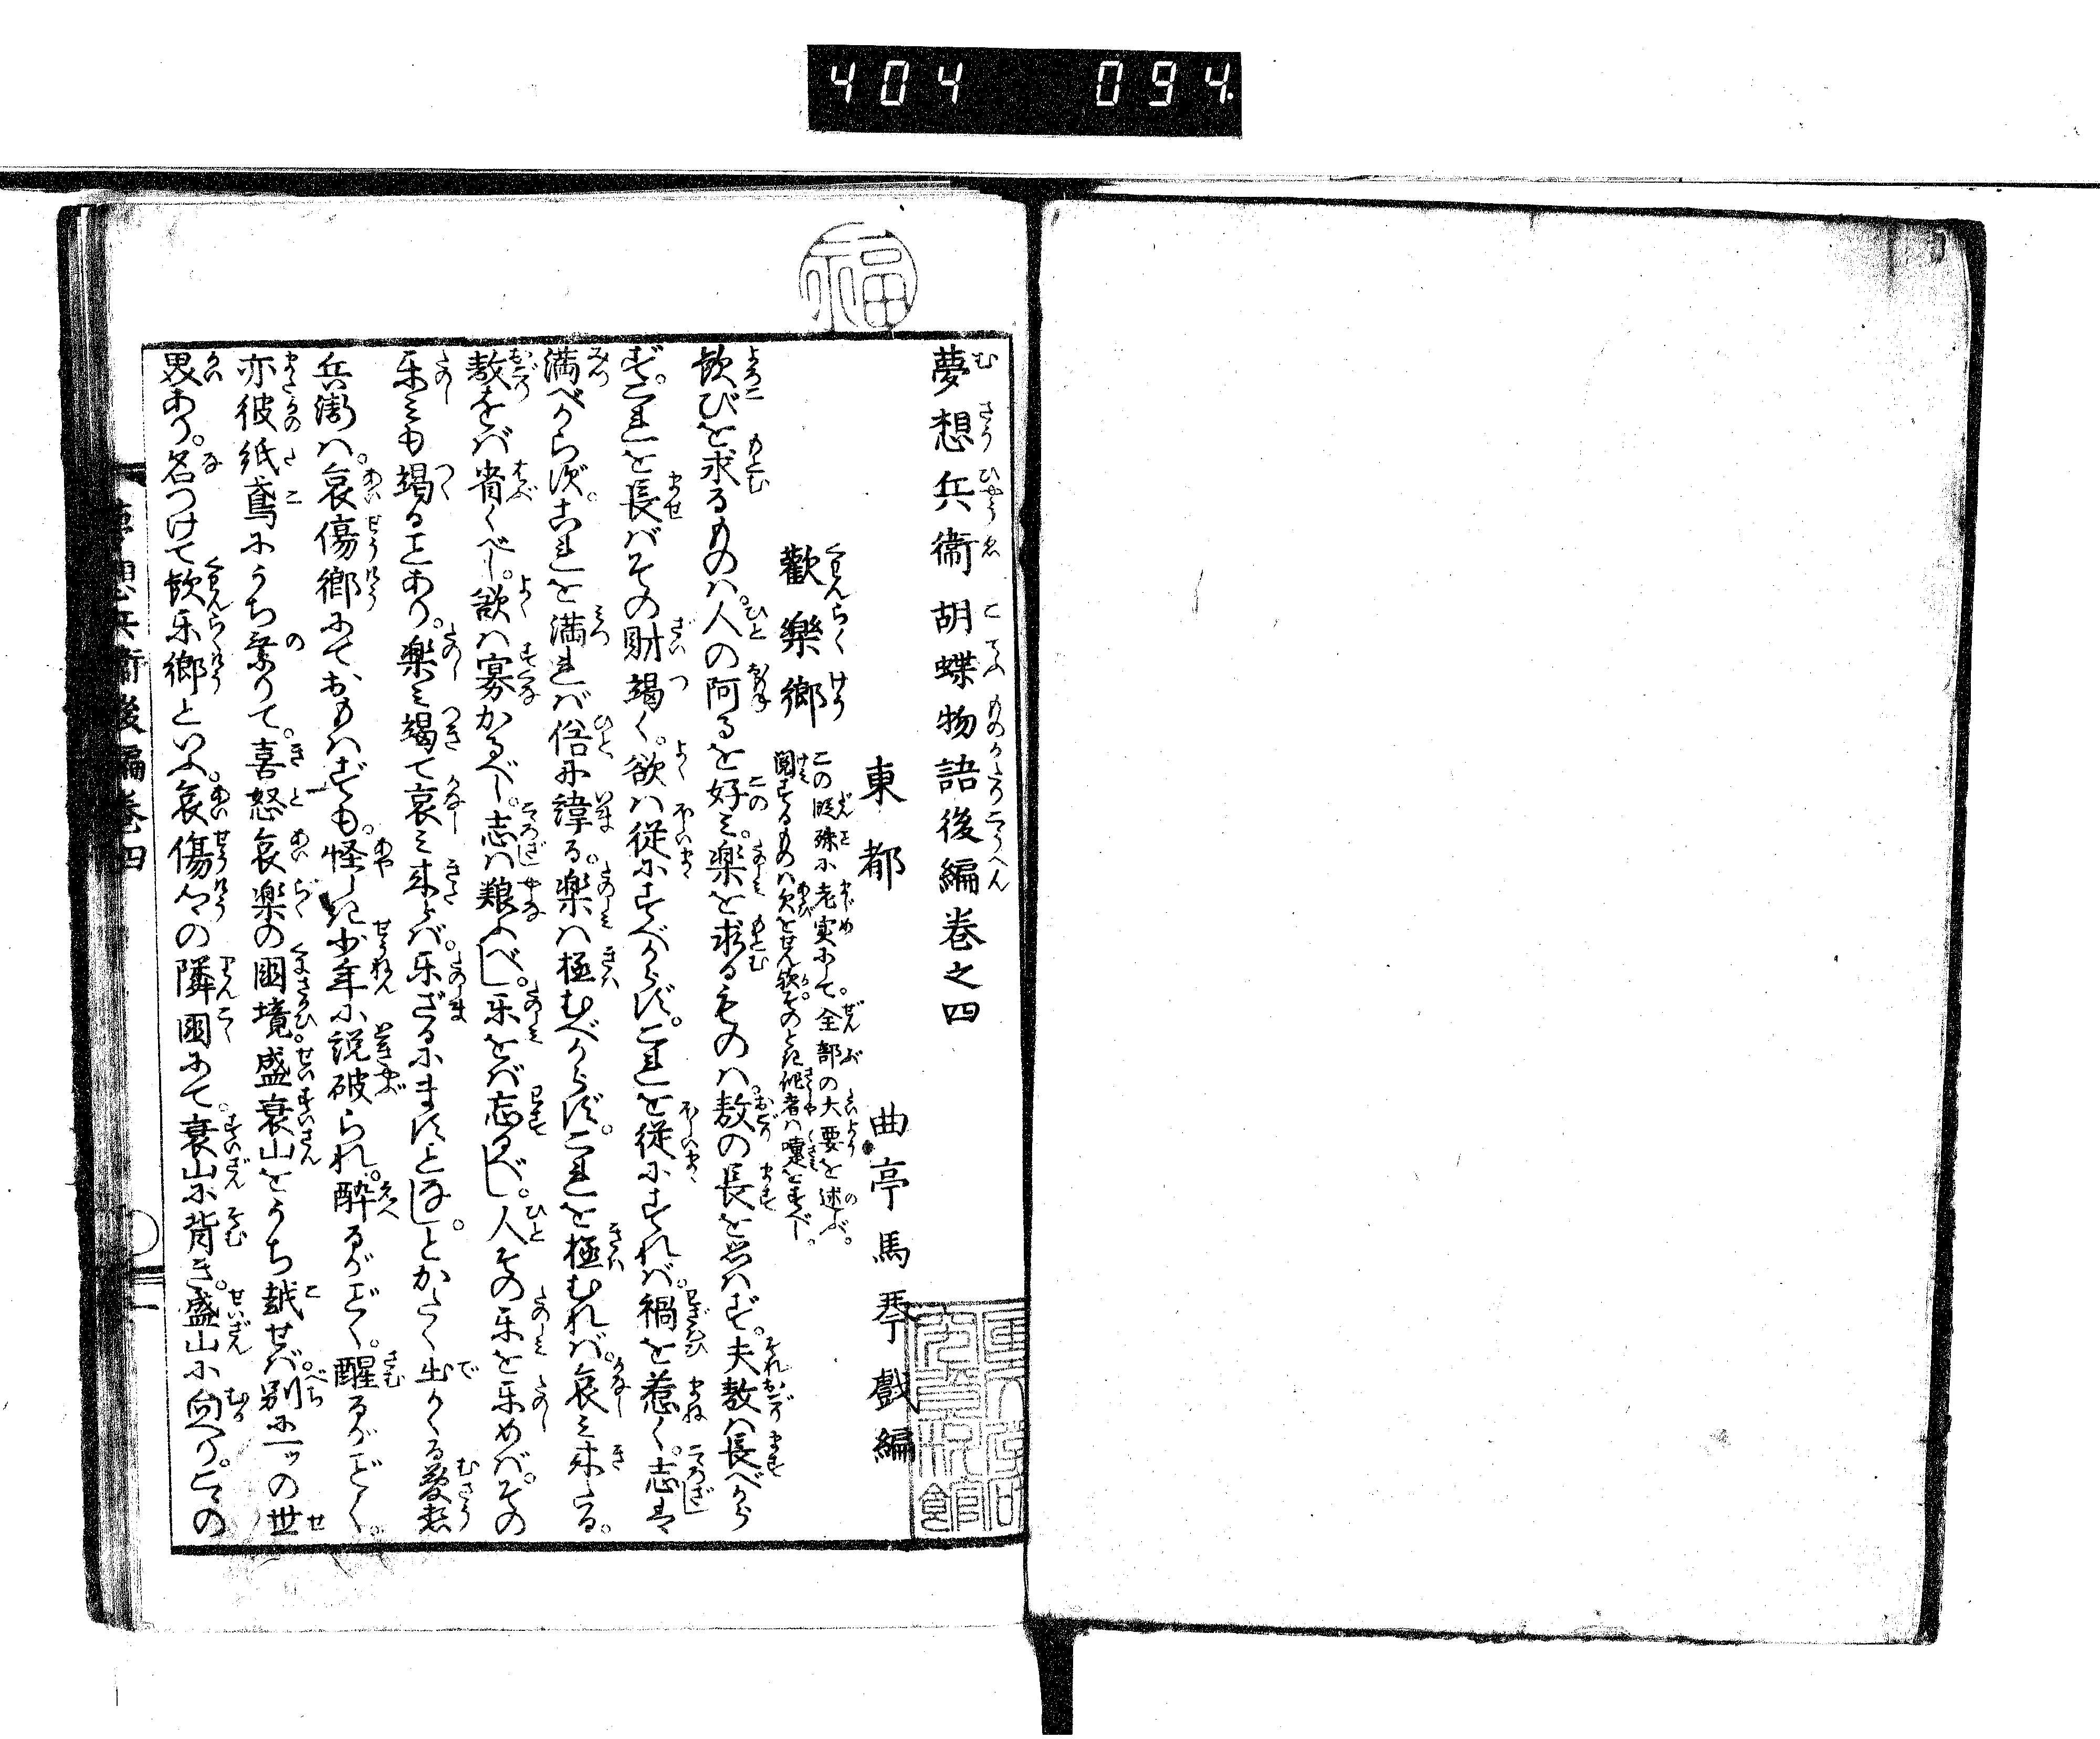 404 094.
福
夢想兵衞胡蝶物語後編巻之四
東都 曲亭馬琴戲編
歡樂郷 この段殊に老実にして。全部の大要を述ぶ。
閲するものは欠をせん歟。そのとき作者は嚏をすべし。
歓びを求るものは。人の阿るを好み。楽を求るものは。敖の長を思はず。夫敖は長べから
ず。これを長ばその財竭く。欲は従にすべからず。これを従にすれば。禍を惹く。志は
満べからず。これを満れば俗に諱る。楽は極むべからず。これを極むれば。哀み来る。
敖をば省くべし。欲は寡かるべし。志は粮ふべし。乐をば忘るべし。人その乐を乐めば。その
乐みも竭ることあり。楽み竭て哀み来らば。乐ざるにますことなし。とかたく出たる夢想
兵衛は。哀傷郷にて、おもはずも。怪しき少年に説破られ。酔るがごとく。醒るがごとく。
亦彼紙鳶にうち乗りて。喜怒哀楽の国境盛衰山をうち越せば。別に一ッの世
界あり。名つけて歓乐郷といふ。哀傷郷の隣国にて。衰山に背き。盛山に向へり。この
夢想兵衞後編巻四